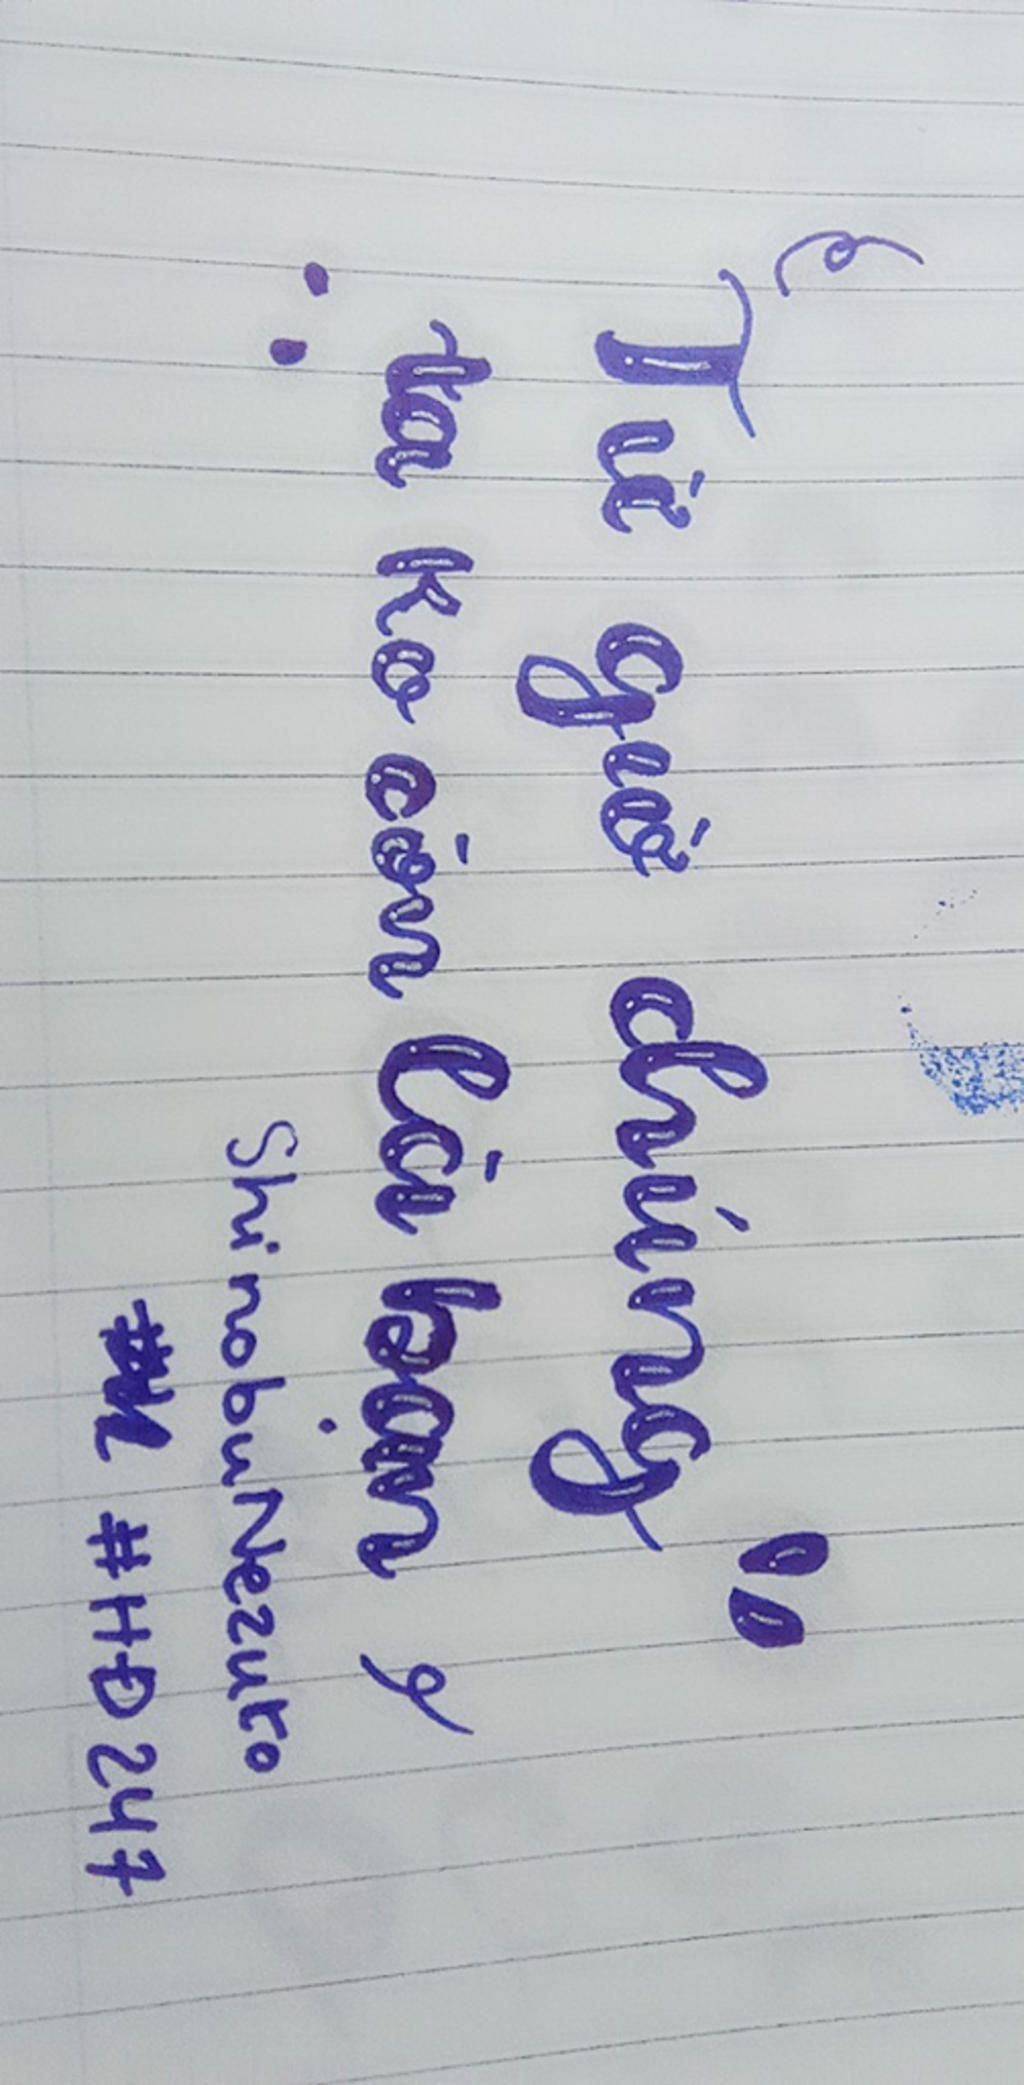 Từ giờ chúng
ta ko còn là bạn
ShinobuNezuko
#HĐ247